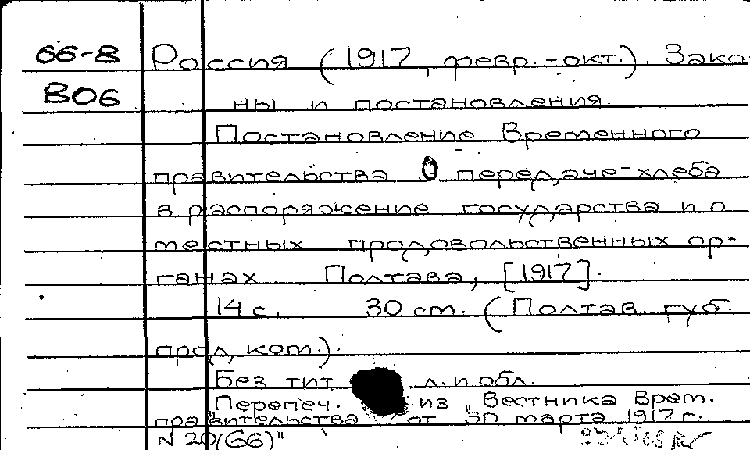 66-8 Россия (1917, февр.-окт.). Зако-
В06 ны и постановления.
Постановление Временного
правительства О передаче хлеба
в распоряжение государства и о
местных продовольственных ор-
ганах Полтава, [1917].
14 с. 30 см. (Полтав. губ.
прод. ком.).
Без тит. л. и обл.
Перепеч. из "Вестника Врем.
правительства от 30 марта 1917 г.
N 20(66)"